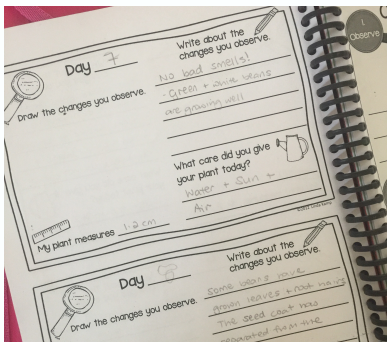 Day 7
Write about the
changes you observe.
Draw the changes you observe.
No bad smells!
. Green + white beans
are growing well
What care did you give
your plant today?
Water + Sun +
Air
My plant measures 1-2 cm
1.
Observe
Day 8
Write about the
changes you observe.
Draw the changes you observe.
Some beans have
grown leaves + root hairs
The seed coat has
separated from the